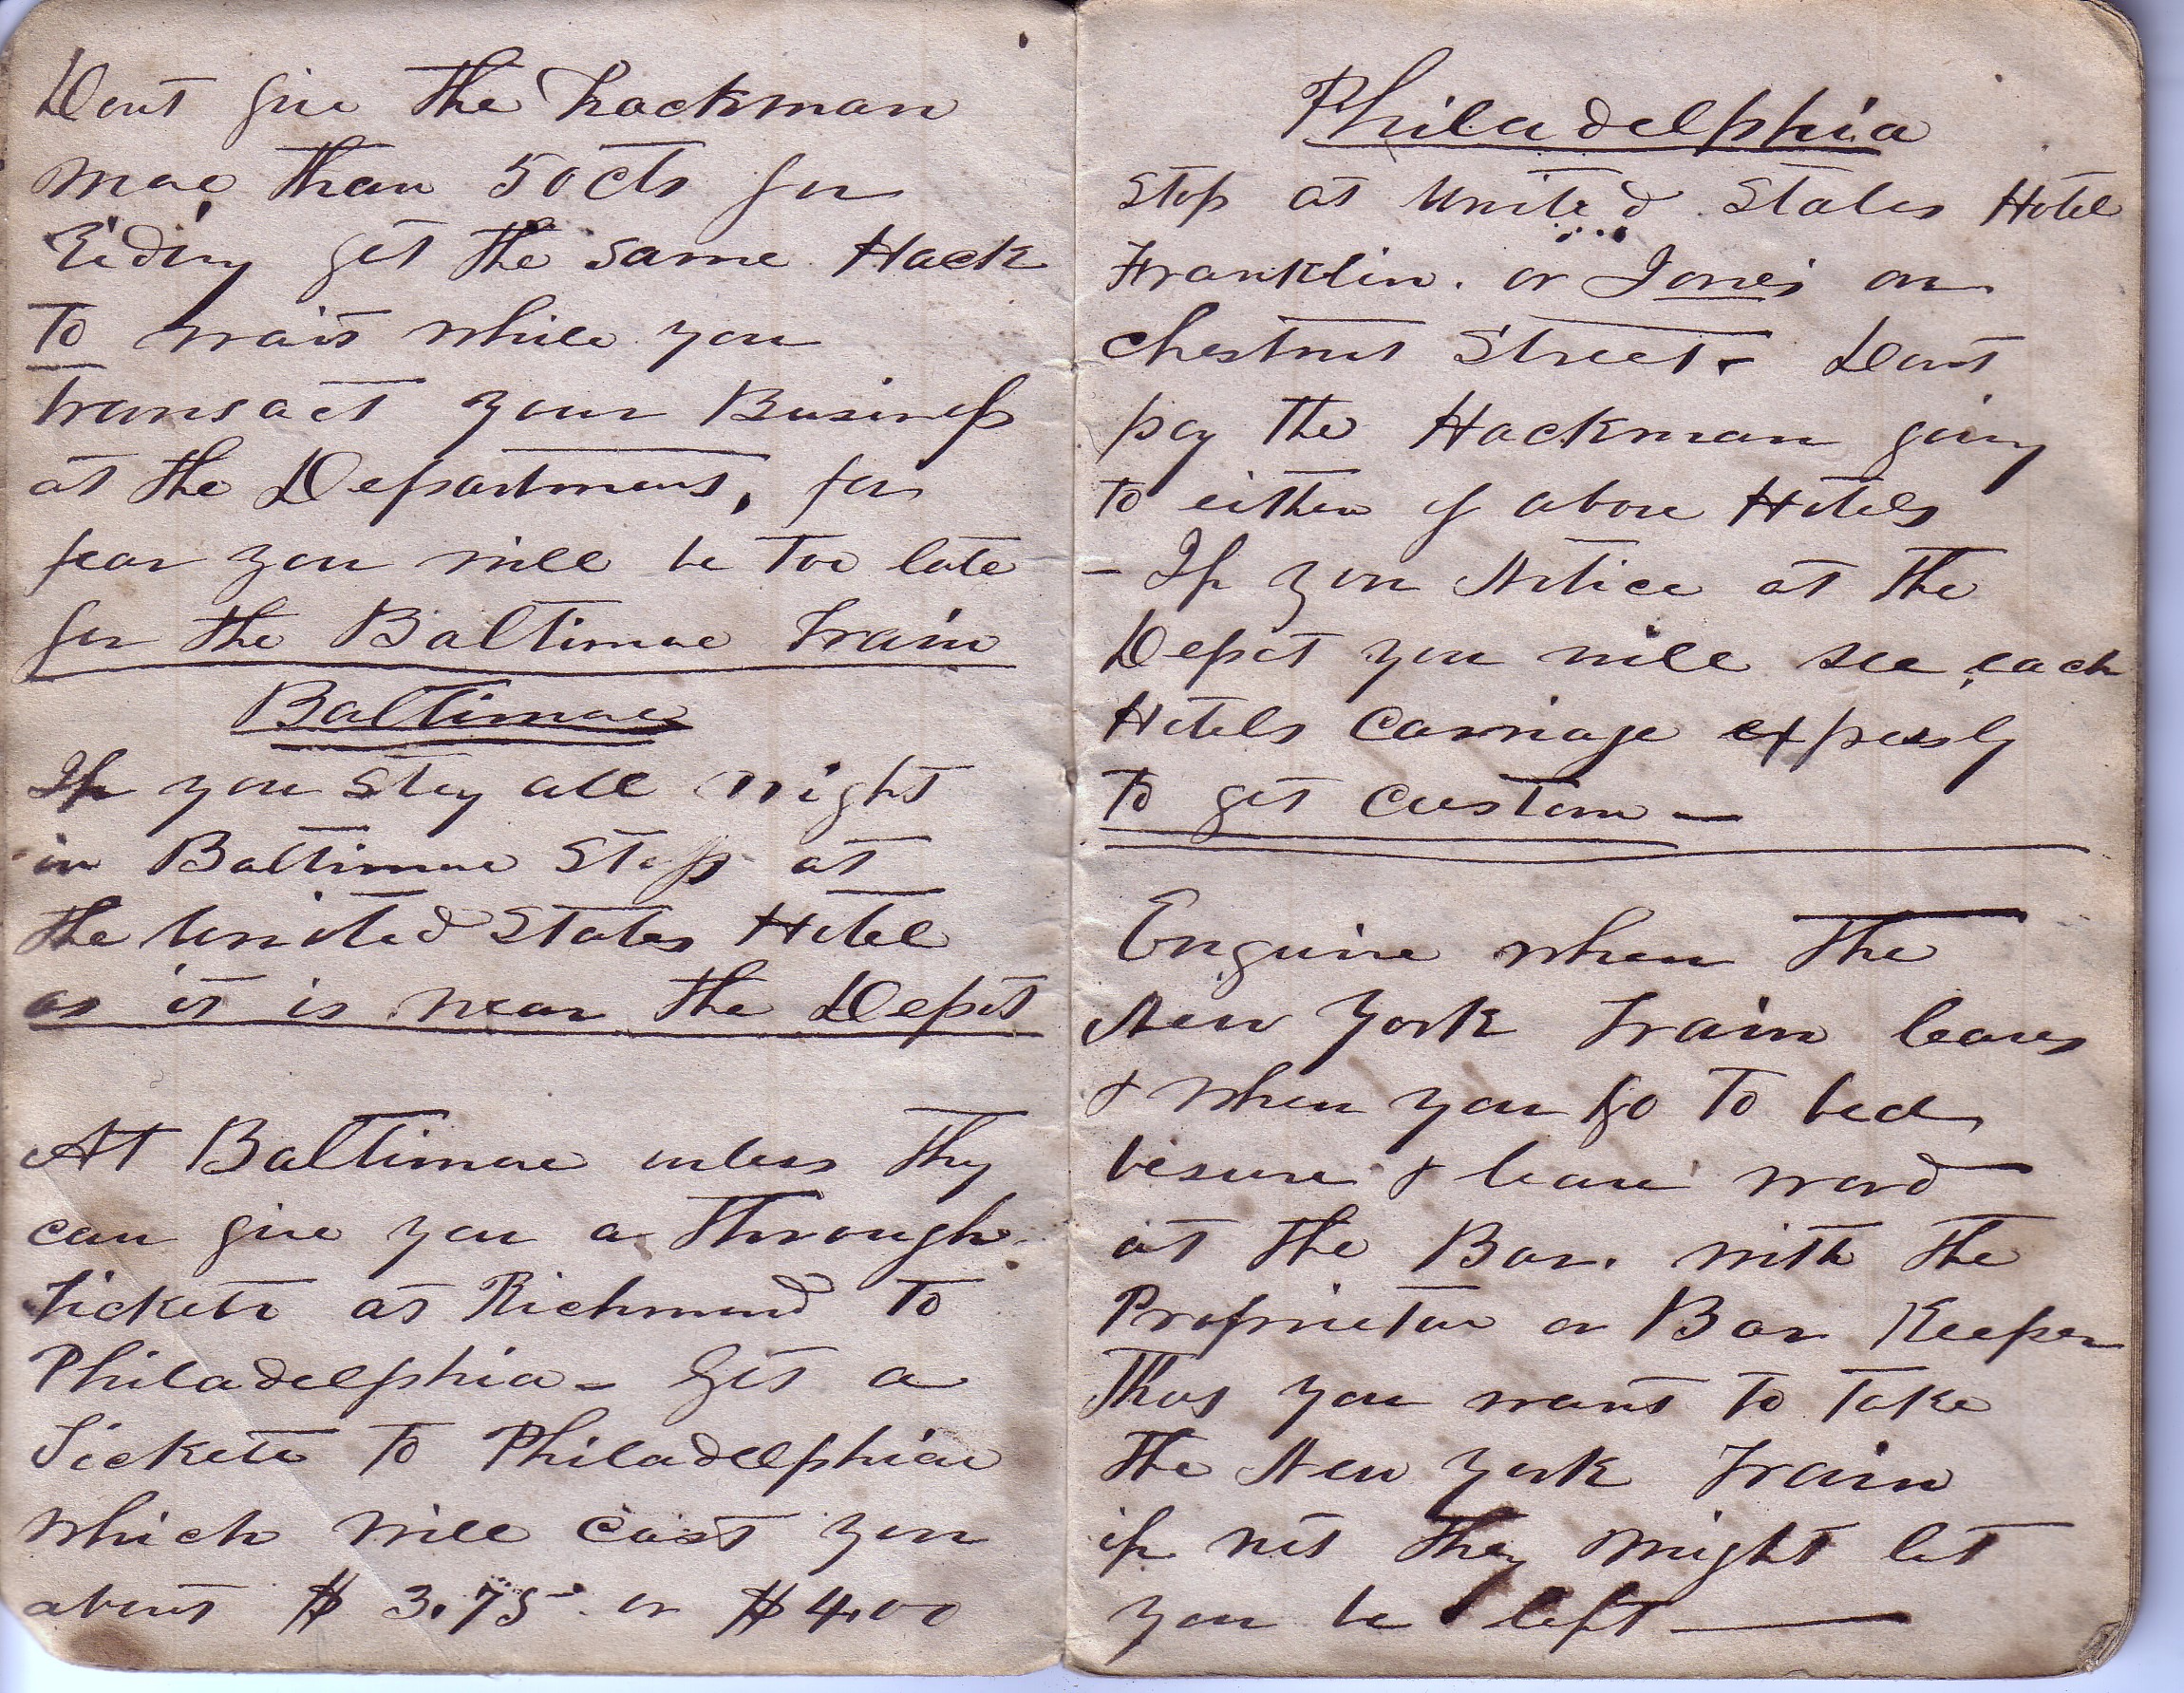 Dont give the hackman
more than 50cts for
Riding get the same Hack
to wait while you
transact your Business
at the Department, for
fear you will be too late
for the Baltimore Train
Baltimore
If you stay all night
in Baltimore Stop at
the United States Hotel
as it is near the Depot
At Baltimore unless they
can give you a through
tickett at Richmond to
Philadelphia - Get a
Tickett to Philadelphia
which will cost you
about $ 3.75 or $4.00
Philadelphia
Stop at United States Hotel
Franklin. or Jones on
chestnut Street. Dont
pay the Hackman going
to either of above Hotels
- If you Notice at the
Depot you will see each
Hotels Carriage expressly
to get custom —
Enquire when the
New York Train leaves
& when you go to bed
besure & leave word
at the Bar. with the
Proprietor or Bar Keeper
That you want to take
the New York Train
if not they might let
you be left —